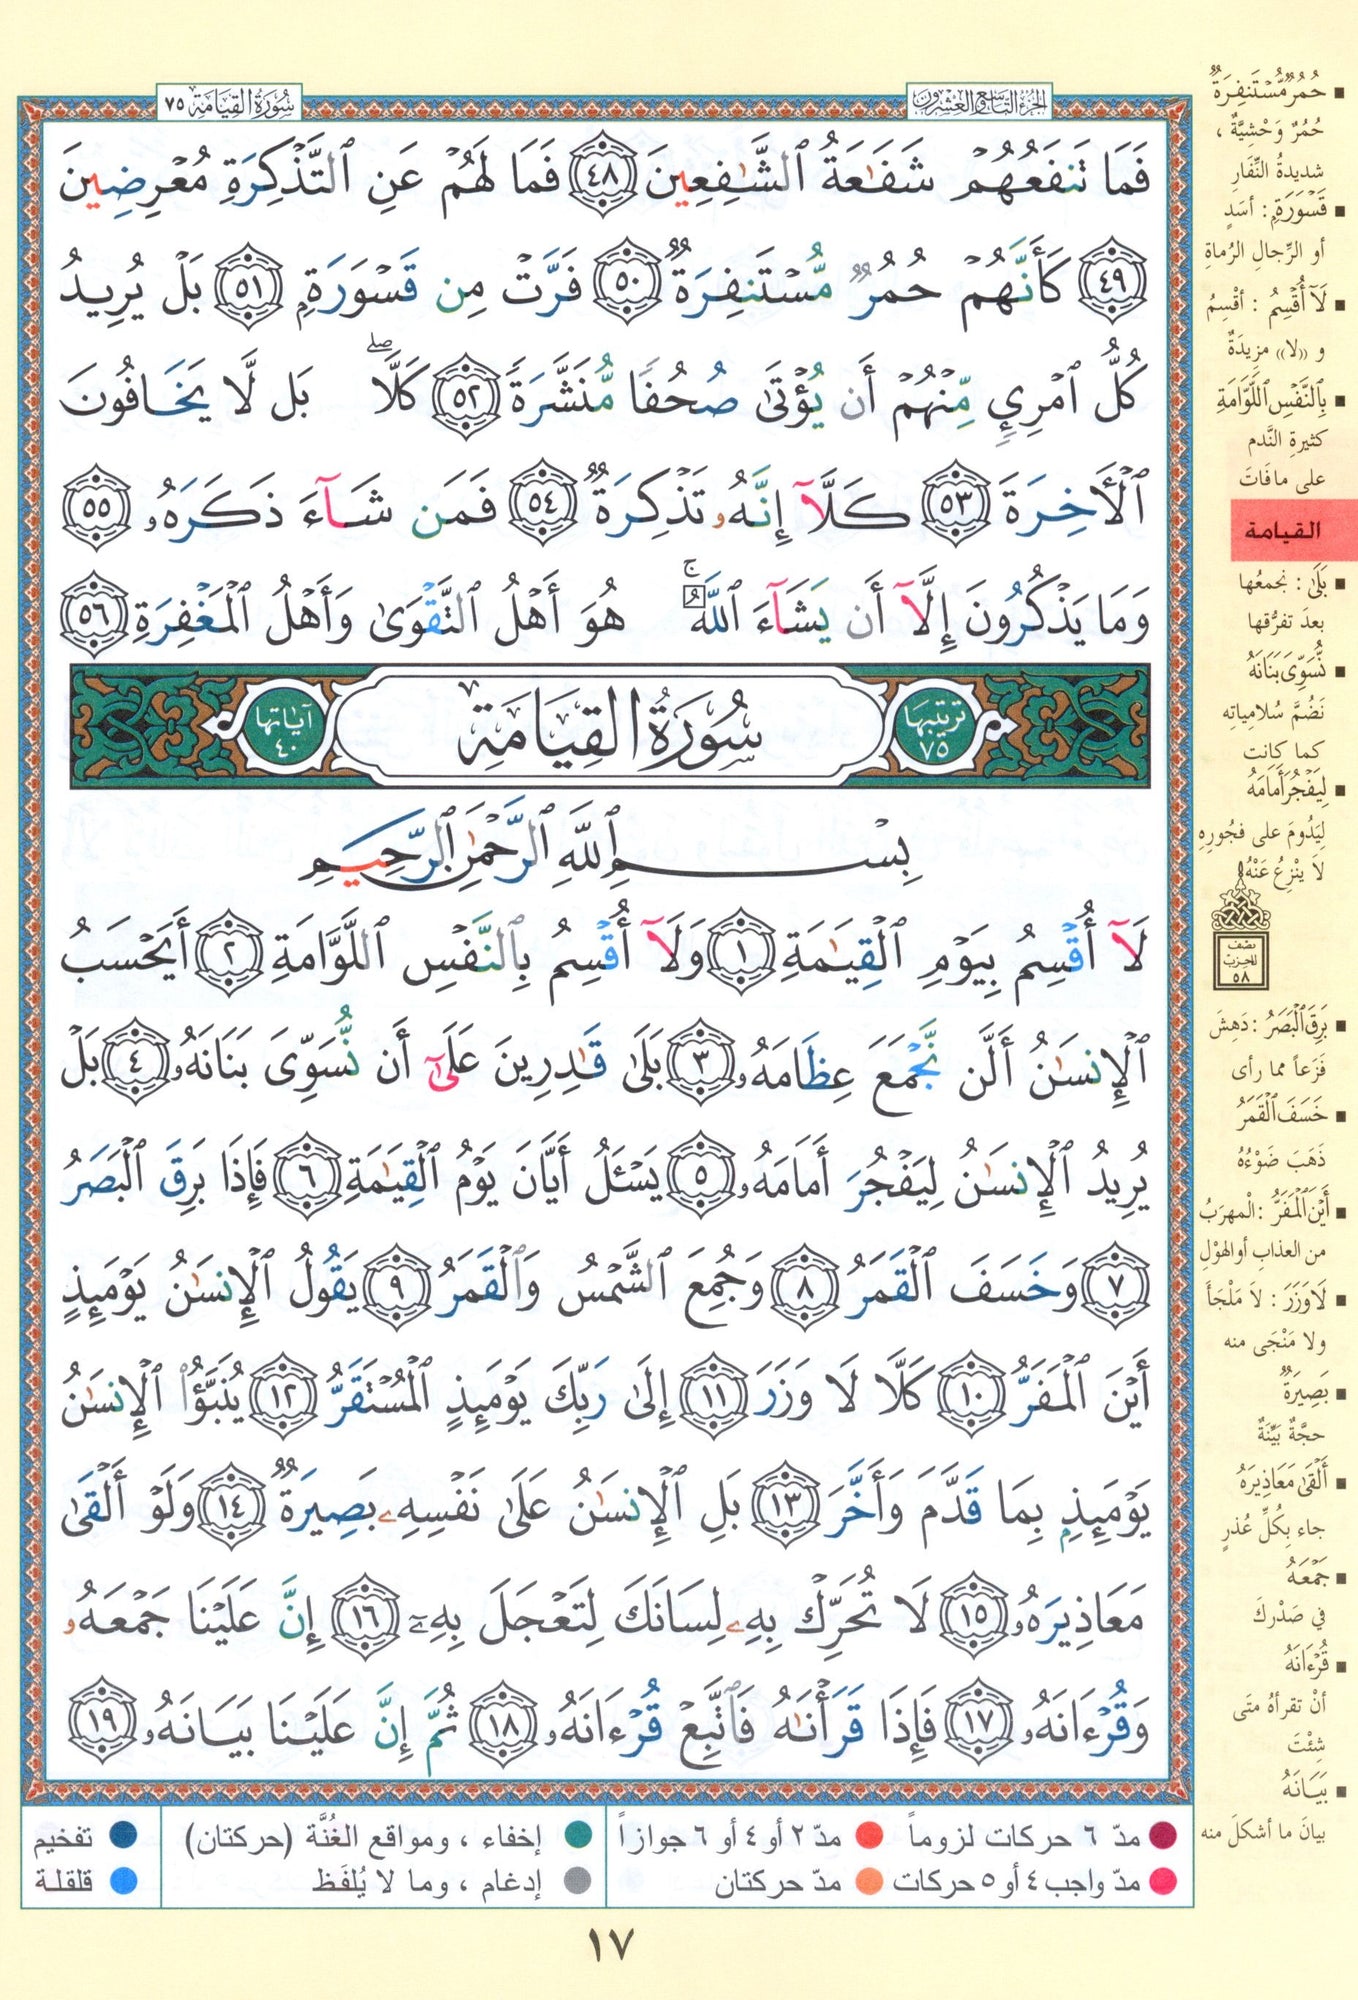 الجزء التاسع والعشرون
سورة القيامة ٧٥
فَمَا تَنفَعُهُمْ شَفَـٰعَةُ ٱلشَّـٰفِعِينَ ٤٨ فَمَا لَهُمْ عَنِ ٱلتَّذْكِرَةِ مُعْرِضِينَ
٤٩ كَأَنَّهُمْ حُمُرٌ مُّسْتَنفِرَةٌ ٥٠ فَرَّتْ مِن قَسْوَرَةٍ ٥١ بَلْ يُرِيدُ
كُلُّ ٱمْرِئٍ مِّنْهُمْ أَن يُؤْتَىٰ صُحُفًا مُّنَشَّرَةً ٥٢ كَلَّا ۖ بَل لَّا يَخَافُونَ
ٱلْأَخِرَةَ ٥٣ كَلَّآ إِنَّهُۥ تَذْكِرَةٌ ٥٤ فَمَن شَآءَ ذَكَرَهُۥ ٥٥
وَمَا يَذْكُرُونَ إِلَّآ أَن يَشَآءَ ٱللَّهُ ۚ هُوَ أَهْلُ ٱلتَّقْوَىٰ وَأَهْلُ ٱلْمَغْفِرَةِ ٥٦
ترتيبها ٧٥
سُورَةُ القِيَامَةِ
آياتها ٤٠
بِسْمِ ٱللَّهِ ٱلرَّحْمَـٰنِ ٱلرَّحِيمِ
لَآ أُقْسِمُ بِيَوْمِ ٱلْقِيَـٰمَةِ ١ وَلَآ أُقْسِمُ بِٱلنَّفْسِ ٱللَّوَّامَةِ ٢ أَيَحْسَبُ
ٱلْإِنسَـٰنُ أَلَّن نَّجْمَعَ عِظَامَهُۥ ٣ بَلَىٰ قَـٰدِرِينَ عَلَىٰٓ أَن نُّسَوِّىَ بَنَانَهُۥ ٤ بَلْ
يُرِيدُ ٱلْإِنسَـٰنُ لِيَفْجُرَ أَمَامَهُۥ ٥ يَسْـَٔلُ أَيَّانَ يَوْمُ ٱلْقِيَـٰمَةِ ٦ فَإِذَا بَرِقَ ٱلْبَصَرُ
٧ وَخَسَفَ ٱلْقَمَرُ ٨ وَجُمِعَ ٱلشَّمْسُ وَٱلْقَمَرُ ٩ يَقُولُ ٱلْإِنسَـٰنُ يَوْمَئِذٍ
أَيْنَ ٱلْمَفَرُّ ١٠ كَلَّا لَا وَزَرَ ١١ إِلَىٰ رَبِّكَ يَوْمَئِذٍ ٱلْمُسْتَقَرُّ ١٢ يُنَبَّؤُا۟ ٱلْإِنسَـٰنُ
يَوْمَئِذٍۭ بِمَا قَدَّمَ وَأَخَّرَ ١٣ بَلِ ٱلْإِنسَـٰنُ عَلَىٰ نَفْسِهِۦ بَصِيرَةٌ ١٤ وَلَوْ أَلْقَىٰ
مَعَاذِيرَهُۥ ١٥ لَا تُحَرِّكْ بِهِۦ لِسَانَكَ لِتَعْجَلَ بِهِۦٓ ١٦ إِنَّ عَلَيْنَا جَمْعَهُۥ
وَقُرْءَانَهُۥ ١٧ فَإِذَا قَرَأْنَـٰهُ فَٱتَّبِعْ قُرْءَانَهُۥ ١٨ ثُمَّ إِنَّ عَلَيْنَا بَيَانَهُۥ ١٩
حُمُرٌ مُّسْتَنفِرَةٌ
حُمُرٌ وَحْشِيَّةٌ ،
شديدةُ النِّفَارِ
قَسْوَرَةٍ : أسَدٍ
أو الرِّجالِ الرُماةِ
لَآ أُقْسِمُ : أقْسِمُ
و «لا» مزِيدَةٌ
بِالنَّفْسِ اللَّوَّامَةِ
كثيرةِ النَّدم
على ما فَاتَ
القيامة
بَلَىٰ : نجمعُها
بعدَ تفرُّقها
نُّسَوِّىَ بَنَانَهُ
نَضُمَّ سُلامِياتِه
كما كانت
لِيَفْجُرَ أَمَامَهُ
لِيَدُومَ على فجُورِهِ
لا يَنْزِعُ عَنْهُ
نصف
الحزب
٥٨
بَرِقَ الْبَصَرُ : دَهِشَ
فَزَعاً مما رأى
خَسَفَ الْقَمَرُ
ذَهَبَ ضَوْءُهُ
أَيْنَ الْمَفَرُّ : الْمهرَبُ
من العذابِ أو الهوْلِ
لَا وَزَرَ : لَا مَلْجَأَ
ولا مَنْجَى منه
بَصِيرَةٌ
حجَّةٌ بَيِّنَةٌ
أَلْقَىٰ مَعَاذِيرَهُ
جاء بِكُلِّ عُذرٍ
جَمْعَهُ
في صَدْرِكَ
قُرْءَانَهُ
أنْ تقرأهُ متَى
شِئْتَ
بَيَانَهُ
بيانَ ما أشكلَ منه
مدّ ٦ حركات لزوماً
مدّ ٢ أو ٤ أو ٦ جوازاً
إخفاء ، ومواقع الغُنَّة (حركتان)
تفخيم
مدّ واجب ٤ أو ٥ حركات
مدّ حركتان
إدغام ، وما لا يُلفَظ
قلقلة
١٧